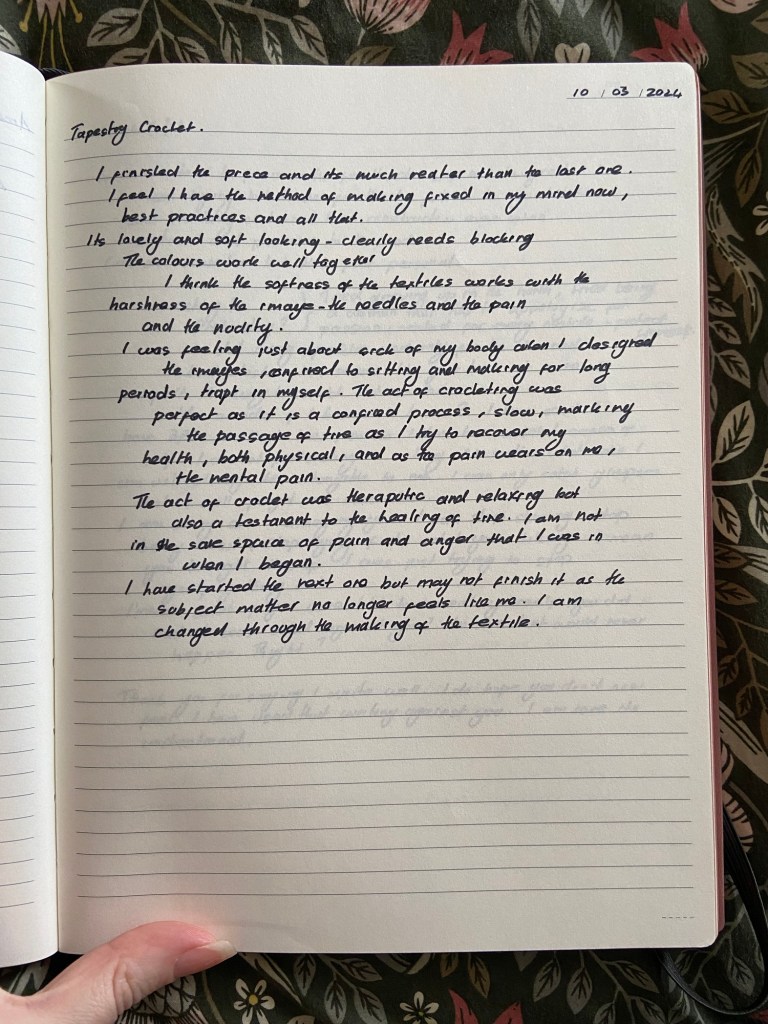 10 / 03 / 2024
Tapestry Crochet.
I finished the piece and its much neater than the last one.
I feel I have the method of making fixed in my mind now,
best practices and all that.
Its lovely and soft looking - clearly needs blocking
The colours work well together
I think the softness of the textiles works with the
harshness of the image - the needles and the pain
and the nudity.
I was feeling just about sick of my body when I designed
the images, confined to sitting and making for long
periods, trapt in myself. The act of crocheting was
perfect as it is a confined process, slow, marking
the passage of time as I try to recover my
health, both physical, and as the pain wears on me,
the mental pain.
The act of crochet was theraputic and relaxing but
also a testamant to the healing of time. I am not
in the same space of pain and anger that I was in
when I began.
I have started the next one but may not finish it as the
subject matter no longer feels like me. I am
changed through the making of the textile.